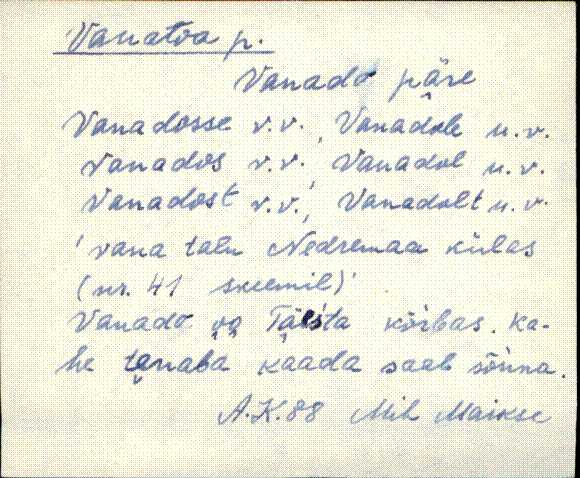 Vanatoa p.
Vanado päre
Vanadosse v.v., Vanadole u.v.
Vanados v.v., Vanadol u.v.
Vanadost v.v., Vanadolt u.v.
'vana talu Nedremaa külas
(nr. 41 skeemil)'
Vanado oo Täista kõrbas. Ka-
he tanaba kaada saab sõnna.
A.K. 88 Mih Maikse